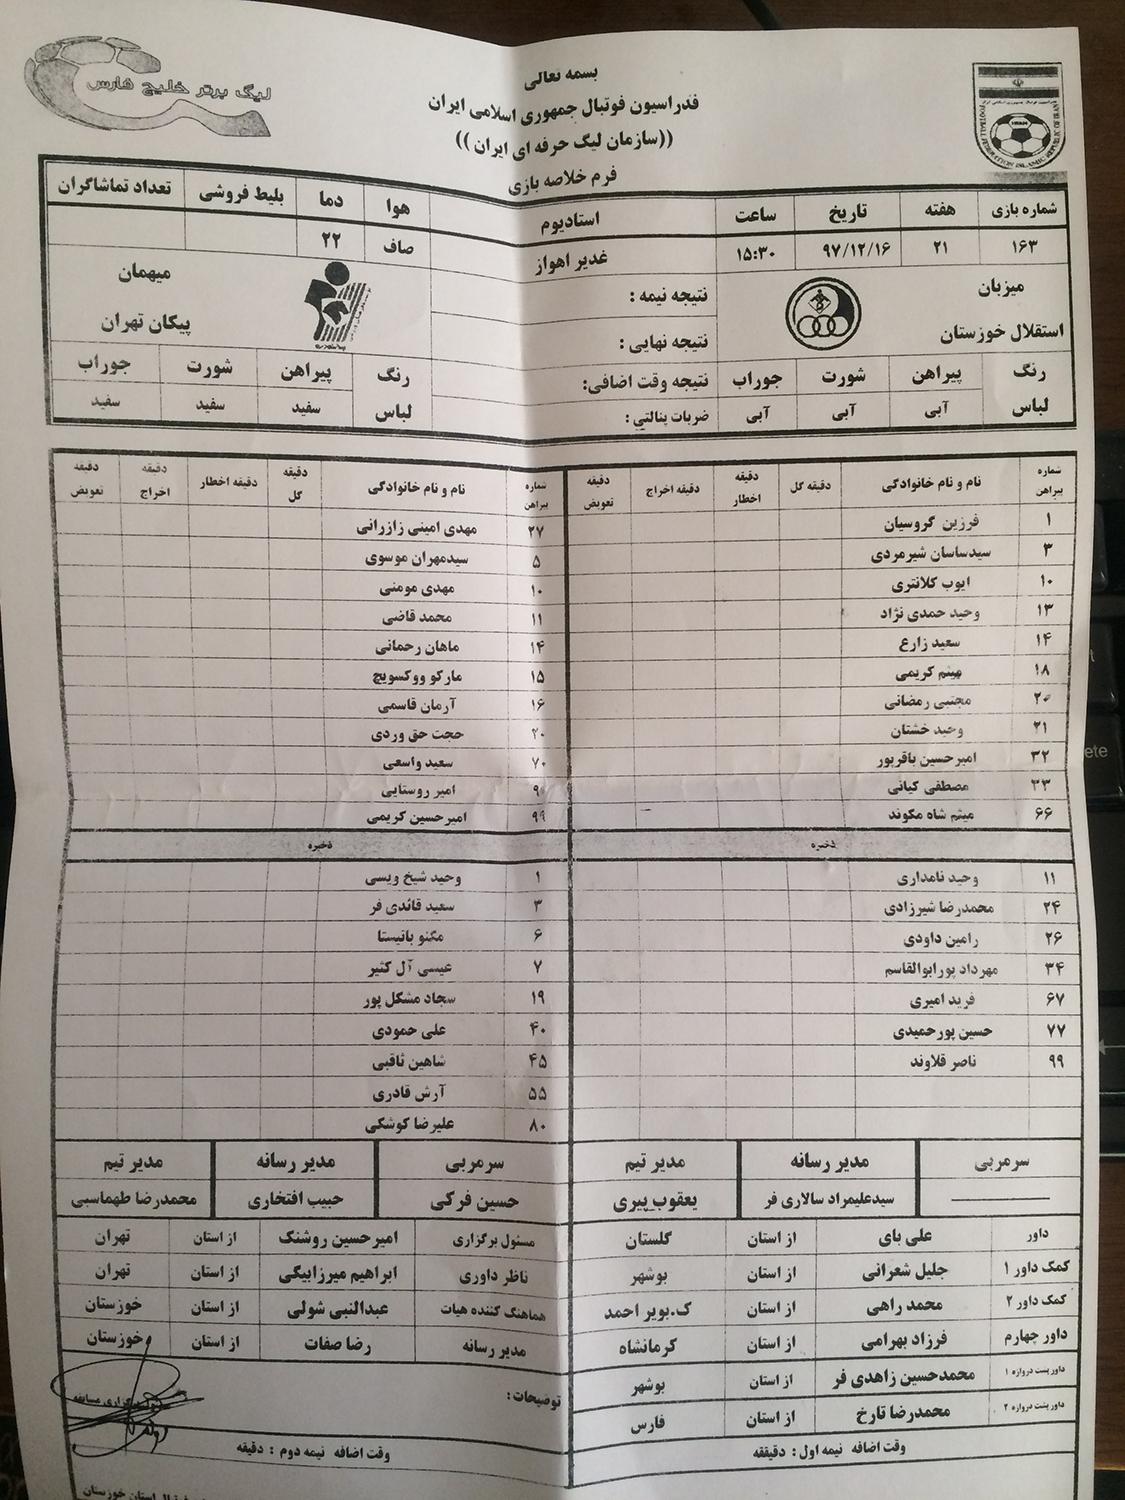 لیگ برتر خلیج فارس
بسمه تعالی
فدراسیون فوتبال جمهوری اسلامی ایران
((سازمان لیگ حرفه ای ایران ))
فرم خلاصه بازی
FOOTBALL FEDERATION ISLAMIC REPUBLIC OF IRAN
شماره بازی هفته تاریخ ساعت استادیوم هوا دما بلیط فروشی تعداد تماشاگران
۱۶۳ ۲۱ ۹۷/۱۲/۱۶ ۱۵:۳۰ غدیر اهواز صاف ۲۲
میزبان نتیجه نیمه : میهمان
استقلال خوزستان نتیجه نهایی : پیکان تهران
رنگ پیراهن شورت جوراب نتیجه وقت اضافی: رنگ پیراهن شورت جوراب
لباس آبی آبی آبی ضربات پنالتی : لباس سفید سفید سفید
شماره پیراهن نام و نام خانوادگی دقیقه گل دقیقه اخطار دقیقه اخراج دقیقه تعویض شماره پیراهن نام و نام خانوادگی دقیقه گل دقیقه اخطار دقیقه اخراج دقیقه تعویض
۱ فرزین گروسیان ۲۷ مهدی امینی زازرانی
۳ سیدساسان شیرمردی ۵ سیدمهران موسوی
۱۰ ایوب کلانتری ۱۰ مهدی مومنی
۱۳ وحید حمدی نژاد ۱۱ محمد قاضی
۱۴ سعید زارع ۱۴ ماهان رحمانی
۱۸ میثم کریمی ۱۵ مارکو ووکسویچ
۲۰ مجتبی رمضانی ۱۶ آرمان قاسمی
۲۱ وحید خشتان ۲۰ حجت حق وردی
۳۲ امیرحسین باقرپور ۷۰ سعید واسعی
۳۳ مصطفی کیانی امیر روستایی
۶۶ میثم شاه مکوند ۹۹ امیرحسین کریمی
ذخیره ذخیره
۱۱ وحید نامداری ۱ وحید شیخ ویسی
۲۴ محمدرضا شیرزادی ۳ سعید قائدی فر
۲۶ رامین داودی ۶ مگنو باتیستا
۳۴ مهرداد پورابوالقاسم ۷ عیسی آل کثیر
۶۷ فرید امیری ۱۹ سجاد مشکل پور
۷۷ حسین پورحمیدی ۴۰ علی حمودی
۹۹ ناصر قلاوند ۴۵ شاهین ثاقبی
۵۵ آرش قادری
۸۰ علیرضا کوشکی
سرمربی مدیر رسانه مدیر تیم سرمربی مدیر رسانه مدیر تیم
سیدعلیمراد سالاری فر یعقوب پیری حسین فرکی حبیب افتخاری محمدرضا طهماسبی
داور علی بای از استان گلستان مسئول برگزاری امیرحسین روشنک از استان تهران
کمک داور ۱ جلیل شعرانی از استان بوشهر ناظر داوری ابراهیم میرزابیگی از استان تهران
کمک داور ۲ محمد راهی از استان ک.بویر احمد هماهنگ کننده هیات عبدالنبی شولی از استان خوزستان
داور چهارم فرزاد بهرامی از استان کرمانشاه مدیر رسانه رضا صفات از استان خوزستان
داورپشت دروازه ۱ محمدحسین زاهدی فر از استان بوشهر توضیحات :
داورپشت دروازه ۲ محمدرضا تارخ از استان فارس
وقت اضافه نیمه اول : دقیقه وقت اضافه نیمه دوم : دقیقه
استان خوزستان